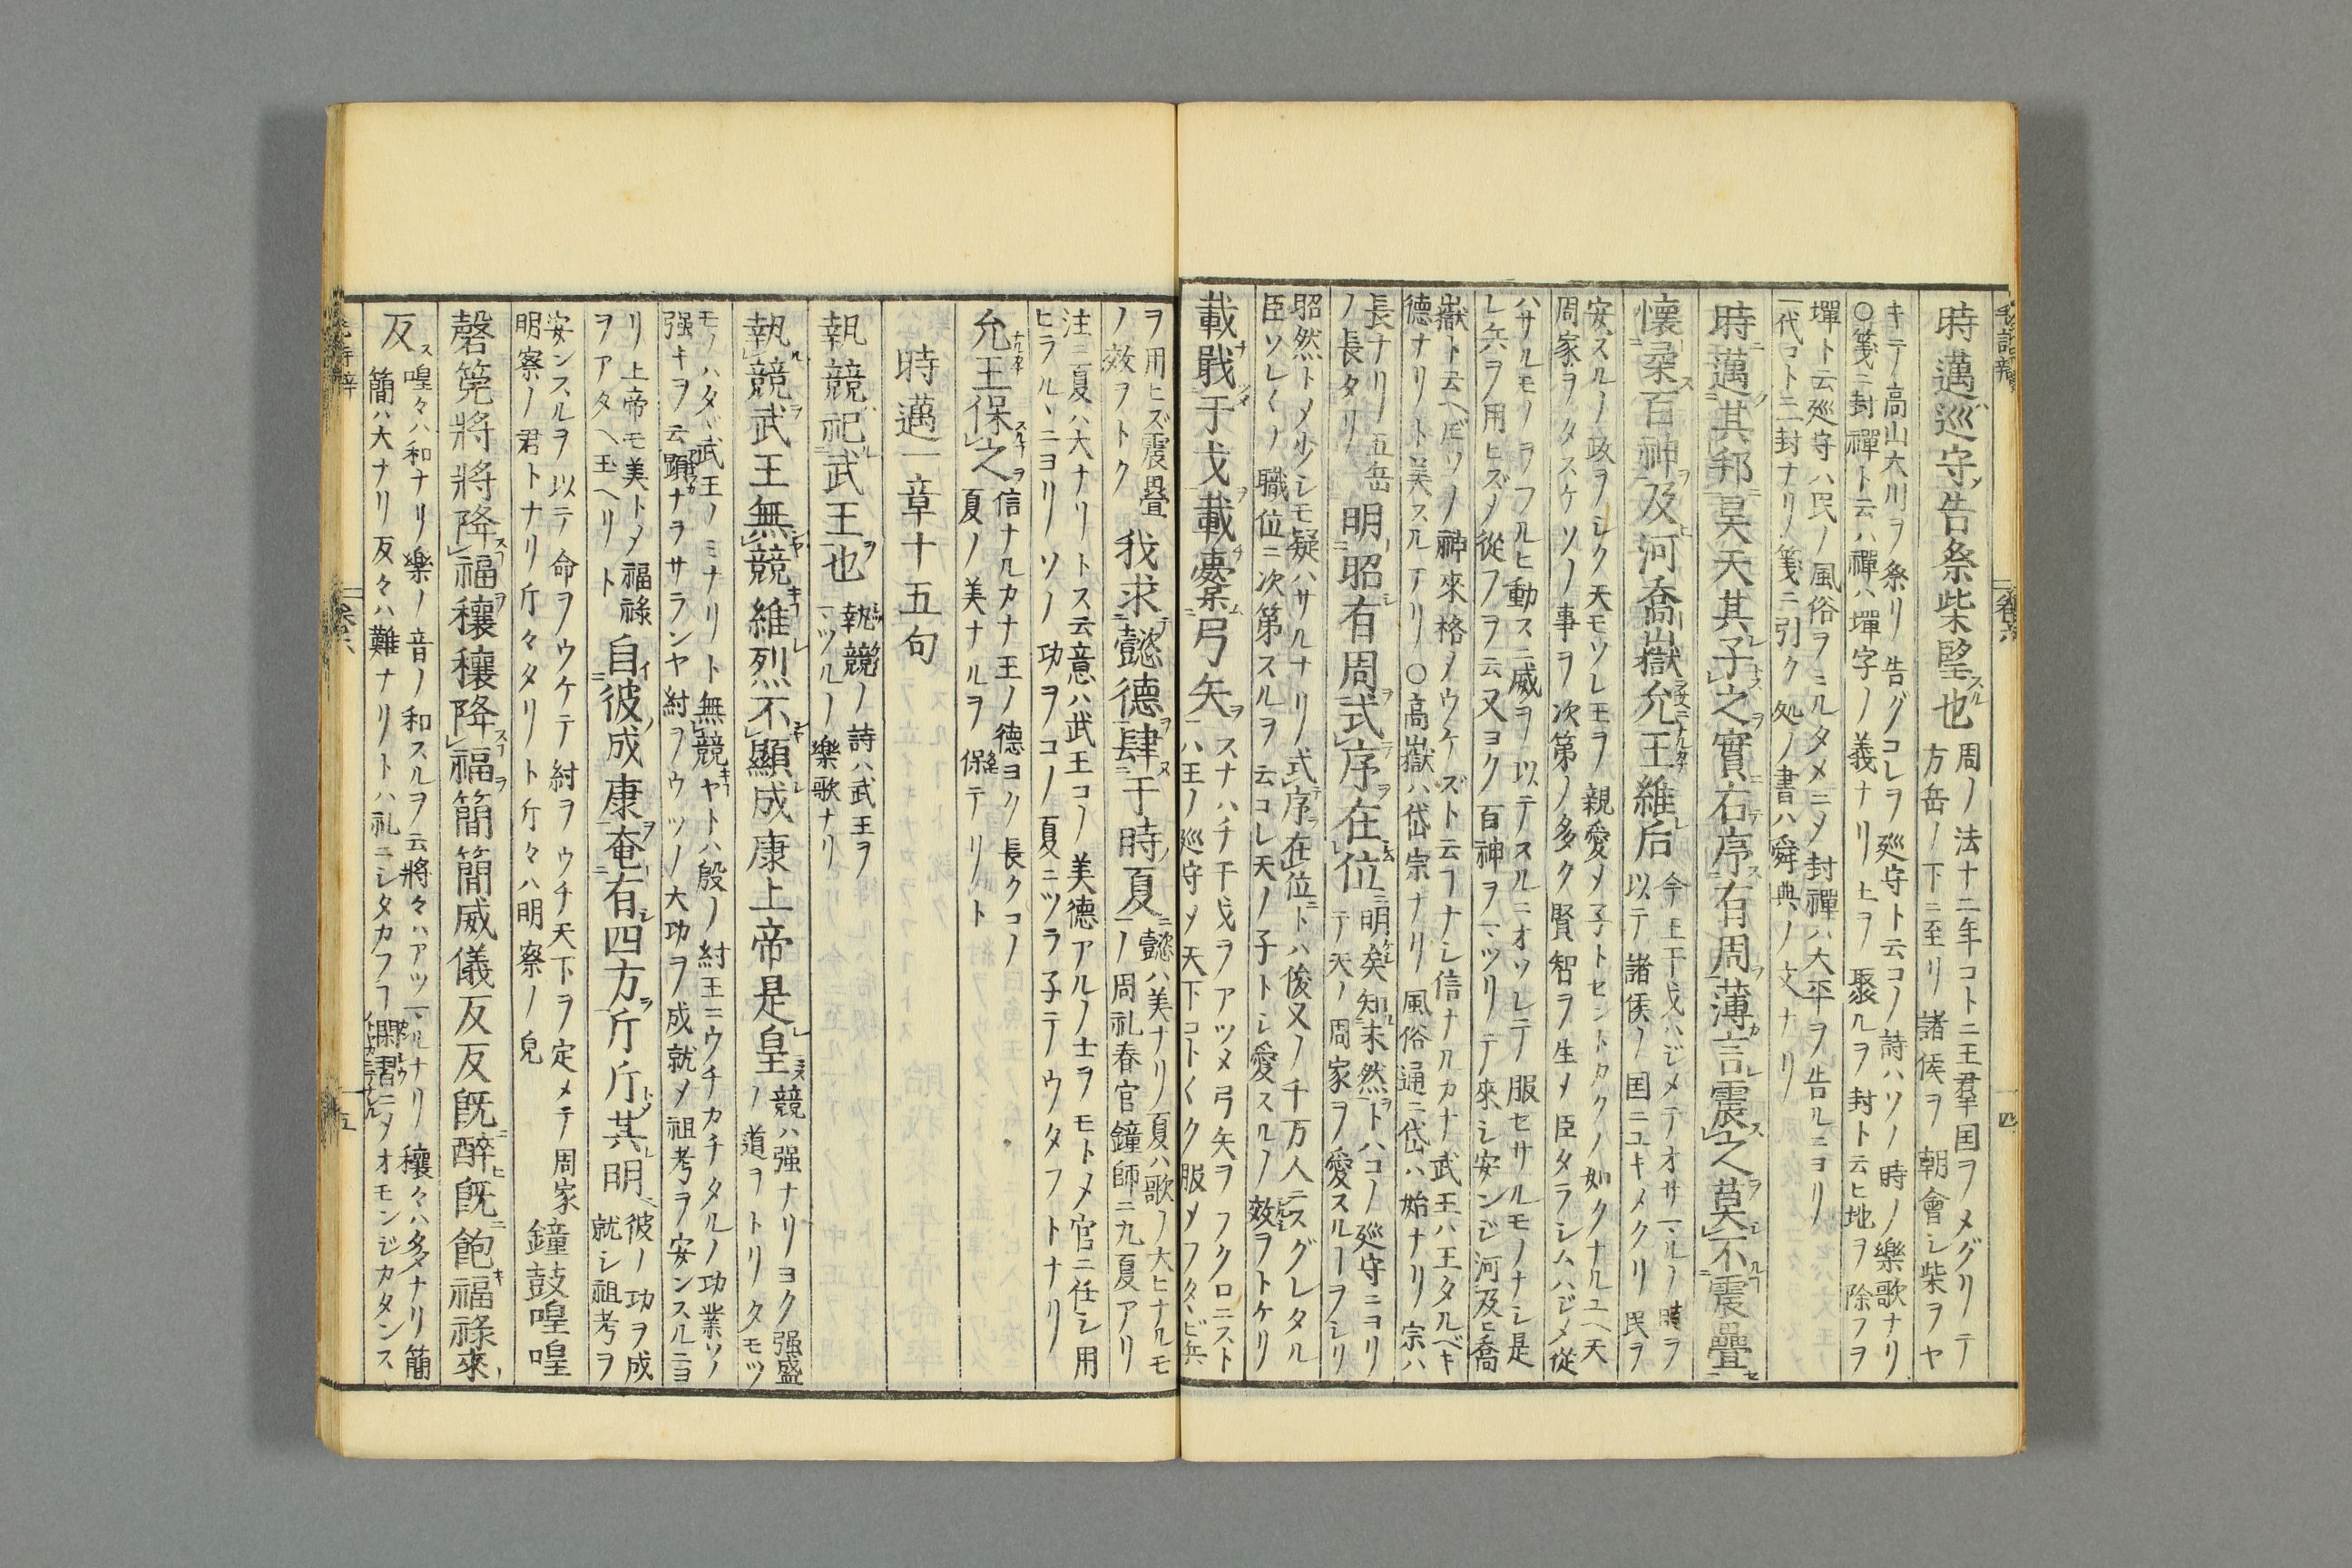 時邁巡守告祭柴望也
周ノ法十二年コトニ王羣国ヲメグリテ
方岳ノ下ニ至リ諸侯ヲ朝會シ柴ヲヤ
キテ高山大川ヲ祭リ告グコレヲ巡守ト云コノ詩ハソノ時ノ樂歌ナリ
〇箋ニ封禪ト云ハ禪ハ墠字ノ義ナリ土ヲ聚ルヲ封ト云ヒ地ヲ除フヲ
墠ト云巡守ハ民ノ風俗ヲミルタメニメ封禪ハ大平ヲ告ルニヨリ
一代コトニ一封ナリノ箋ニ引ク処ノ書ハ舜典ノ文ナリ
時邁其邦昊天其子之實右序有周薄言震之莫不震疊
懷柔百神及河喬嶽允王維后
今王干戈ハジメテオサマルノ時ヲ
以テ諸侯ノ国ニユキメクリ民ヲ
安スルノ政ヲシク天モソレ王ヲ親愛メ子トセントカクノ如クナルユヘ天
周家ヲタスケソノ事ヲ次第ノ多ク賢智ヲ生メ臣タラシムハジメ從
ハサルモノヲフルヒ動スニ威ヲ以テスルニオソレテ服セサルモノナシ是
レ兵ヲ用ヒズメ從フヲ云又ヨク百神ヲマツリテ來シ安ンジ河及ヒ喬
嶽ト云ヘ𪜈ソノ神來格メウケズト云フナシ信ナルカナ武王ハ王タルベキ
德ナリト美スルナリ〇高嶽ハ岱宗ナリ風俗通ニ岱ハ始ナリ宗ハ
長ナリノ五岳
ノ長タリ
明昭有周式序在位
明矣知未然トハコノ巡守ニヨリ
テ天ノ周家ヲ愛スルヿヲシリ
昭然トメ少シモ疑ハサルナリ式序在位トハ俊乂ノ千万人ニスグレタル
臣ソレ〱ノ職位ニ次第スルヲ云コレ天ノ子トシ愛スルノ效ヲトケリ
載戢干戈載櫜弓矢
スナハチ干戈ヲアツメ弓矢ヲフクロニスト
ハ王ノ巡守メ天下コト〱ク服メフタヽビ兵
ヲ用ヒズ震疊
ノ效ヲトク
我求懿德肆于時夏
懿ハ美ナリノ夏ハ歌ノ大ヒナルモ
ノ周礼春官鐘師ニ九夏アリ
注ニ夏ハ大ナリトス云意ハ武王コノ美德アルノ士ヲモトメ官ニ任シ用
ヒラルヽニヨリソノ功ヲコノ夏ニツラ子テウタフトナリ
允王保之
信ナルカナ王ノ德ヨク長クコノ
夏ノ美ナルヲ保テリト
時邁一章十五句
執競祀武王也
執競ノ詩ハ武王ヲ
マツルノ樂歌ナリ
執競武王無競維烈不顯成康上帝是皇
競ハ强ナリヨク强盛
ノ道ヲトリタモツ
モノハタヽ武王ノミナリト無競ヤトハ殷ノ紂王ニウチカチタルノ功業ソノ
强キヲ云顯ナラサランヤ紂ヲウツノ大功ヲ成就メ祖考ヲ安ンスルニヨ
リ上帝モ美トメ福祿
ヲアタヘ玉ヘリト
自彼成康奄有四方斤斤其明
彼ノ功ヲ成
就シ祖考ヲ
安ンスルヲ以テ命ヲウケテ紂ヲウチ天下ヲ定メテ周家
明察ノ君トナリ斤々タリト斤々ハ明察ノ皃
鐘鼓喤喤
磬筦將將降福穰穰降福簡簡威儀反反旣醉旣飽福祿來
反
喤々ハ和ナリ樂ノ音ノ和スルヲ云將々ハアツマルナリ穰々ハ多ナリ簡
簡ハ大ナリ反々ハ難ナリトハ礼ニシタカフヿ閑習ニメオモンジカタンス
卷六
四
五